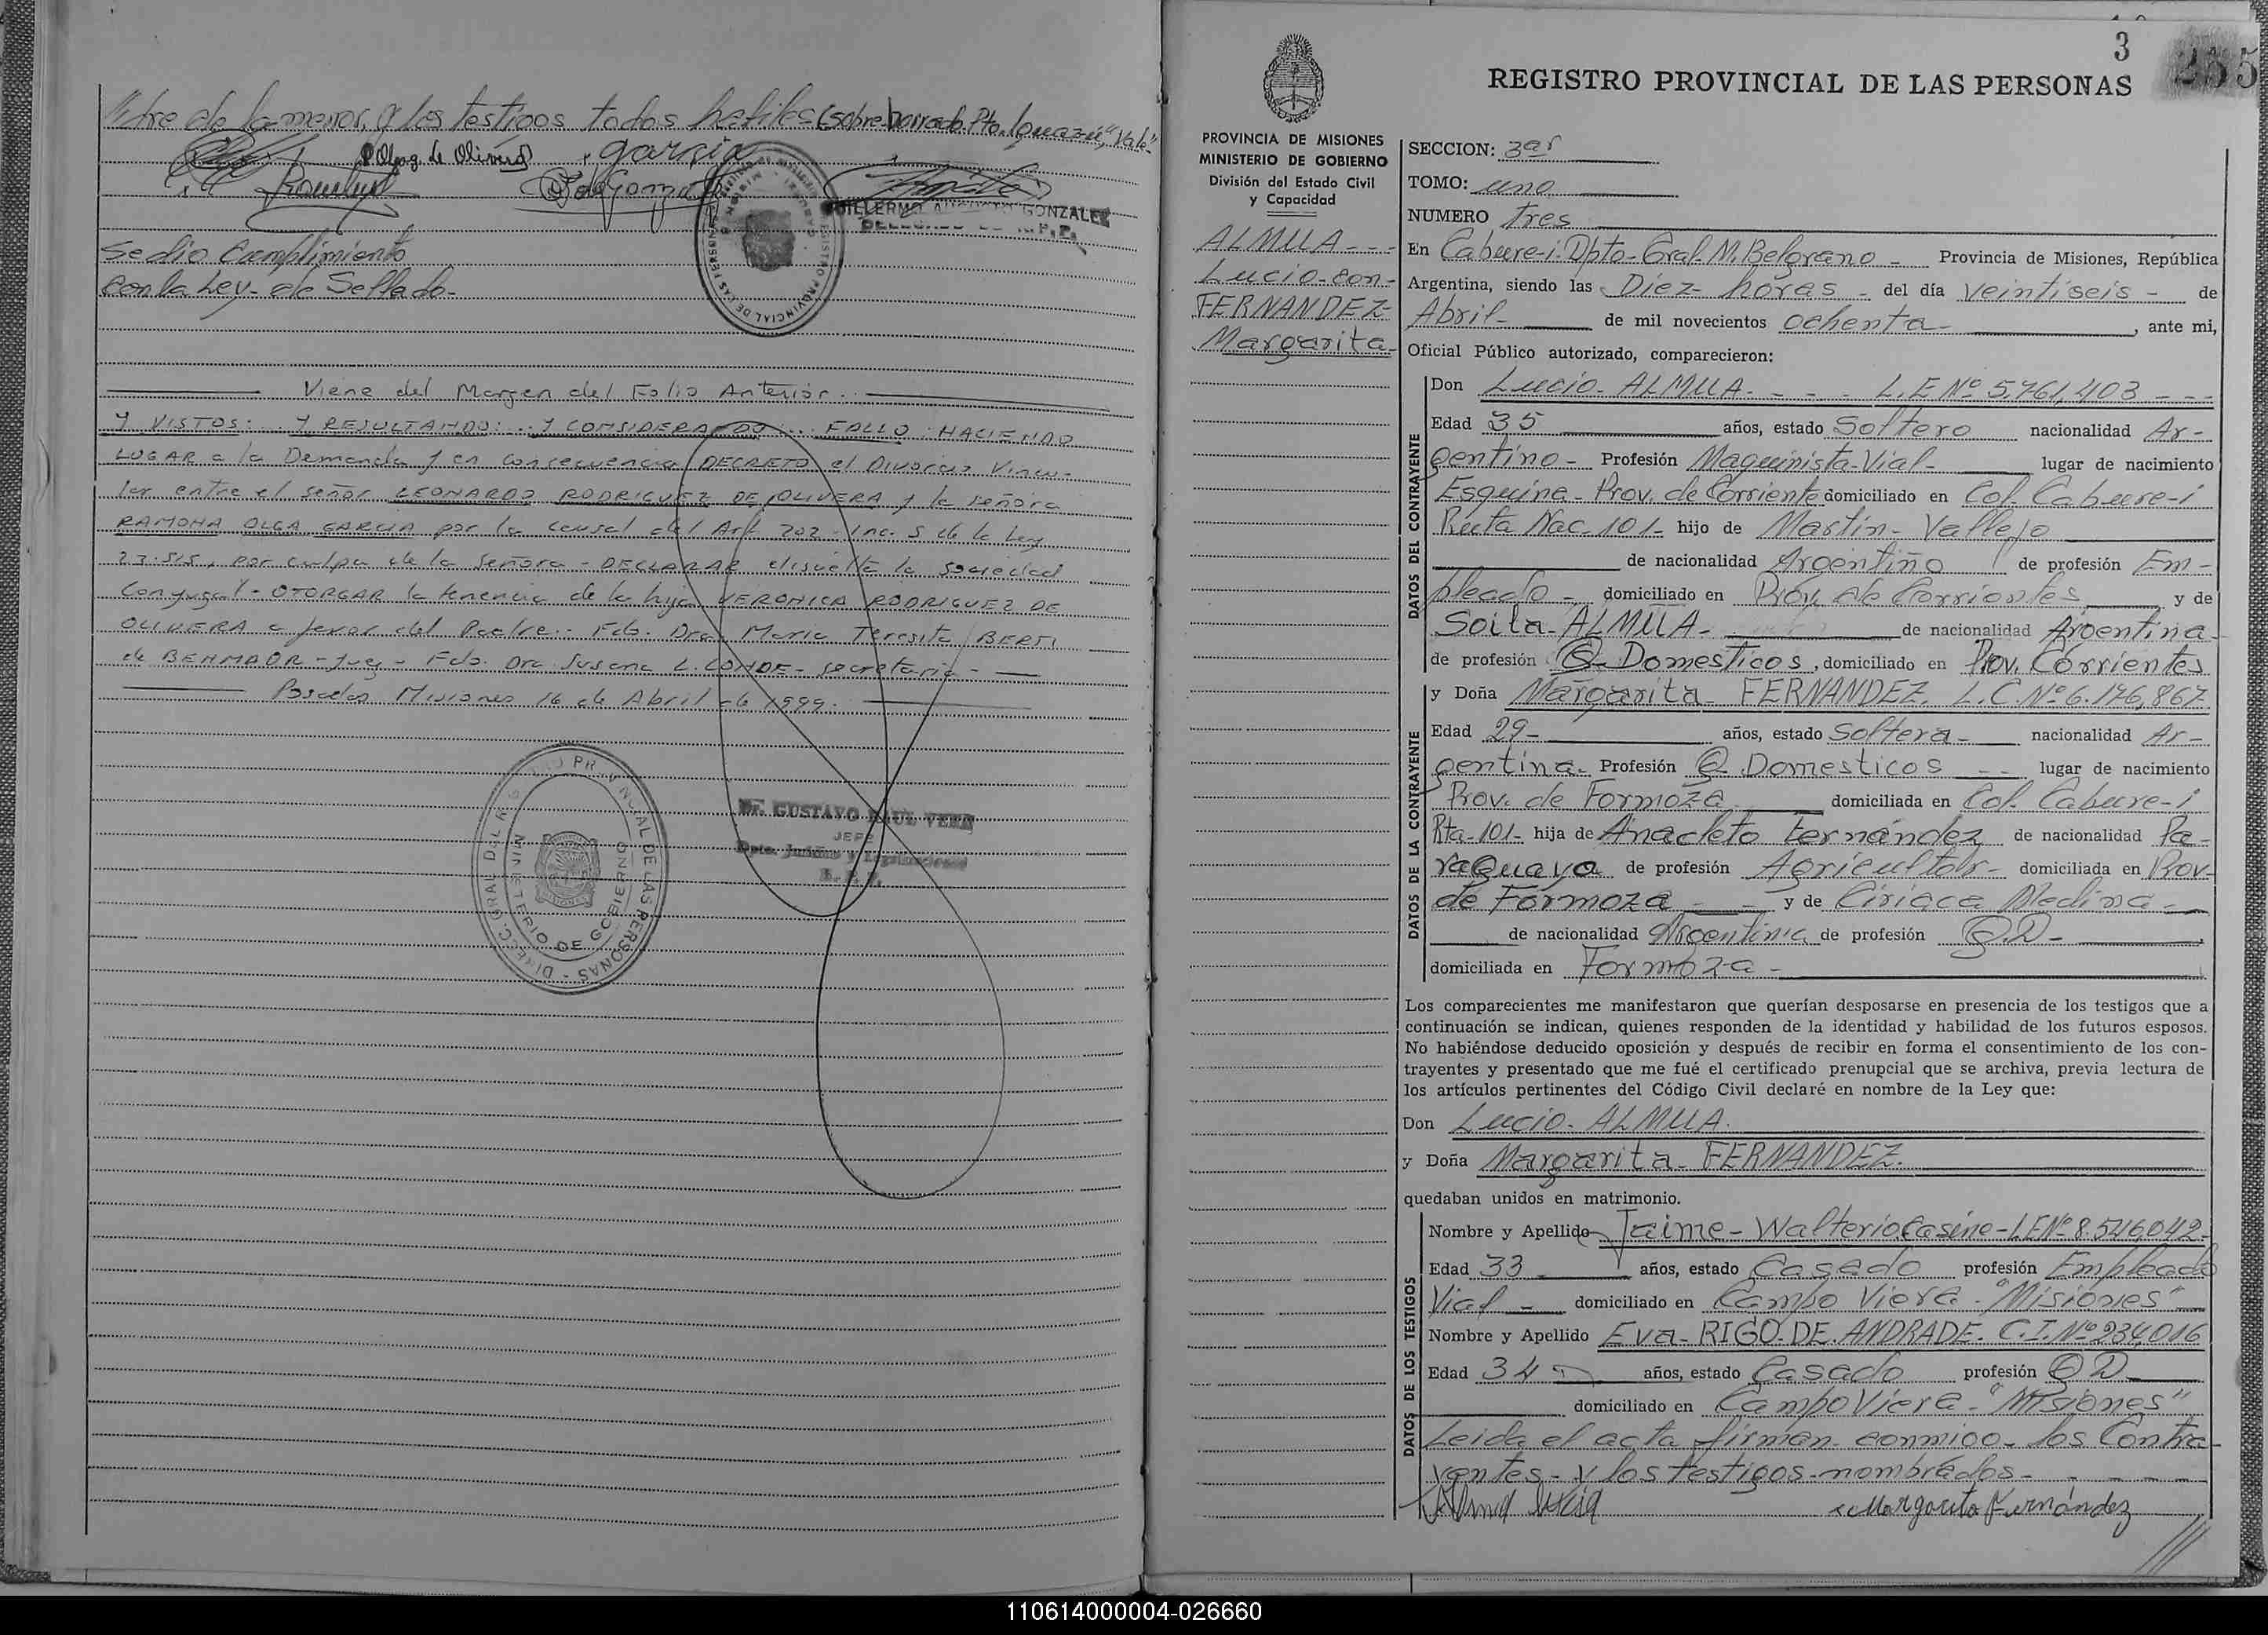 dre de la menor, y los testigos todos habiles (sobre borrado Pto. Iguazú "Vale"
Olga g. de Olivera garcia
GUILLERMO AUGUSTO GONZALEZ
Se dio Cumplimiento
con la Ley de Sellado.
Viene del Margen del Folio Anterior.
Y VISTOS: .. Y RESULTANDO: .. Y CONSIDERANDO ... FALLO: HACIENDO
LUGAR a la Demanda y en consecuencia DECRETO el Divorcio Vincu-
lar entre el señor LEONARDO RODRIGUEZ DE OLIVERA y la señora
RAMONA OLGA GARCIA por la causal del Art 202 - Inc. 5 de la Ley
23.515, por culpa de la Señora - DECLARAR disuelta la sociedad
Conyugal - OTORGAR la tenencia de la hija VERONICA RODRIGUEZ DE
OLIVERA a favor del Padre.- Fdo. Dra. Maria Teresita BERTI
de BENMAOR - Juez - Fdo. Dra Susana L. CONDE - secretaria -
Posadas Misiones 16 de Abril de 1999.
Dr. GUSTAVO RAUL VERA
JEFE
DIRECC. GRAL DEL REGISTRO PROVINCIAL DE LAS PERSONAS
MINISTERIO DE GOBIERNO
3
255
REGISTRO PROVINCIAL DE LAS PERSONAS
PROVINCIA DE MISIONES
MINISTERIO DE GOBIERNO
División del Estado Civil
y Capacidad
ALMUA - - -
Lucio - con -
FERNANDEZ
Margarita
SECCION: 3ar
TOMO: uno
NUMERO Tres
En Cabure-i. Dpto. Gral. M. Belgrano - Provincia de Misiones, República
Argentina, siendo las Diez horas - del día veintiseis - de
Abril - de mil novecientos ochenta - , ante mi,
Oficial Público autorizado, comparecieron:
DATOS DEL CONTRAYENTE
Don Lucio - ALMUA. - - - L.E Nº 5.761,403 - - -
Edad 35 años, estado Soltero nacionalidad Ar-
gentino - Profesión Maquinista-Vial - lugar de nacimiento
Esquina - Prov. de Corriente domiciliado en Col. Cabure-i
Ruta Nac. 101 - hijo de Martin - Vallejo
de nacionalidad Argentino de profesión Em-
pleado - domiciliado en Prov. de Corrientes y de
Soila - ALMUA - de nacionalidad Argentina -
de profesión Q - Domesticos, domiciliado en Prov. Corrientes
DATOS DE LA CONTRAYENTE
y Doña Margarita - FERNANDEZ. L.C. Nº 6.176,867
Edad 29 - años, estado Soltera - nacionalidad Ar -
gentina - Profesión Q Domesticos - - lugar de nacimiento
Prov. de Formoza domiciliada en Col. Cabure-i
Rta. 101 - hija de Anacleto Fernández de nacionalidad Pa-
raguaya de profesión Agricultor - domiciliada en Prov-
de Formoza - - y de Ciriaca Medina -
de nacionalidad Argentina de profesión Q.D -
domiciliada en Formoza -
Los comparecientes me manifestaron que querían desposarse en presencia de los testigos que a
continuación se indican, quienes responden de la identidad y habilidad de los futuros esposos.
No habiéndose deducido oposición y después de recibir en forma el consentimiento de los con-
trayentes y presentado que me fué el certificado prenupcial que se archiva, previa lectura de
los artículos pertinentes del Código Civil declaré en nombre de la Ley que:
Don Lucio - ALMUA.
y Doña Margarita - FERNANDEZ.
quedaban unidos en matrimonio.
DATOS DE LOS TESTIGOS
Nombre y Apellido Jaime - Walterio Casine - LE Nº 8.546,042
Edad 33 años, estado Casado profesión Empleado
Vial - domiciliado en Campo Viera - "Misiones"
Nombre y Apellido Eva - RIGO - DE. ANDRADE. C.I. Nº 234,016
Edad 34 años, estado Casado profesión Q D
domiciliado en Campo Viera - "Misiones"
Leida el acta firman conmigo - los Contra-
yentes - y los testigos - nombrados -
Margarita Fernández
110614000004-026660